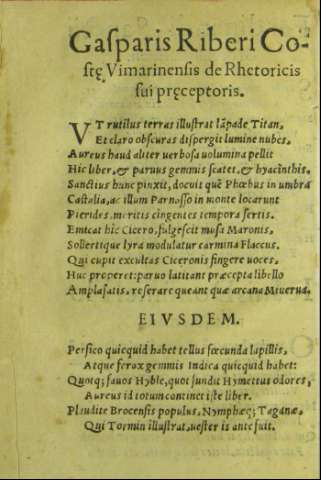 Gasparis Riberi Co-
stę Vimarinensis de Rhetoricis
sui pręceptoris.
VT rutilus terras illustrat lāpade Titan,
Et claro obscuras dispergit lumine nubes,
Aureus haud aliter uerbosa uolumina pellit
Hic liber, & paruus gemmis scatet, & hyacīnthis.
Sanctius hunc pinxit, docuit quē Phœbus in umbra
Castalia, ac illum Parnasso in monte locarunt
Pierides meritis cingentes tempora sertis.
Emicat hic Cicero, fulgescit musa Maronis,
Sollertique lyra modulatur carmina Flaccus.
Qui cupit excultas Ciceronis fingere uoces,
Huc properet: paruo latitant præcepta libello
Ampla satis, reserare queant quæ arcana Mineruæ.
EIVSDEM.
Persico quicquid habet tellus fœcunda lapillis,
Atque ferox gemmis Indica quicquid habet:
Quotq; fauos Hyblę, quot fundit Hymettus odores,
Aureus id totum continet iste liber.
Plaudite Brocensis populus, Nymphæq; Taganæ,
Qui Tormin illustrat, uester is ante fuit.